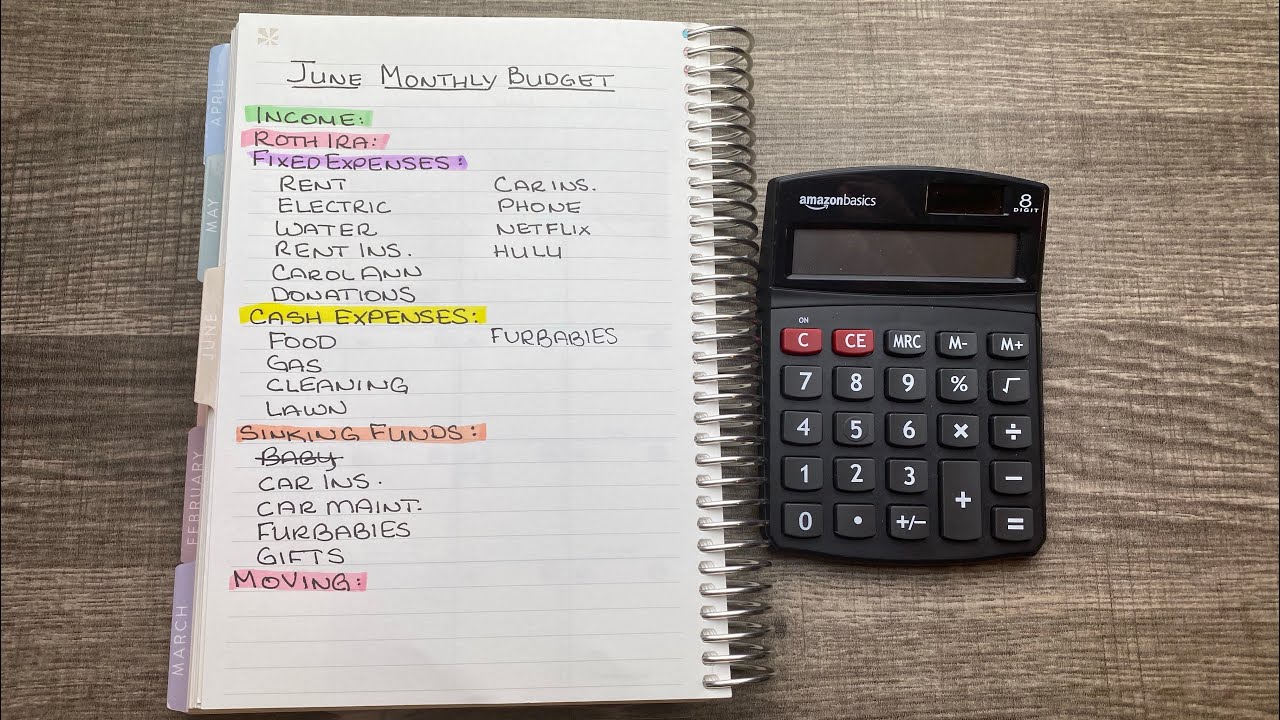 JUNE MONTHLY BUDGET
INCOME:
ROTH IRA:
FIXED EXPENSES:
RENT CAR INS.
ELECTRIC PHONE
WATER NETFLIX
RENT INS. HULU
CAROL ANN
DONATIONS
CASH EXPENSES:
FOOD FURBABIES
GAS
CLEANING
LAWN
SINKING FUNDS:
BABY
CAR INS.
CAR MAINT.
FURBABIES
GIFTS
MOVING:
APRIL
MAY
JUNE
FEBRUARY
MARCH
amazonbasics
8
DIGIT
ON
C CE MRC M- M+
7 8 9 % √
4 5 6 × ÷
1 2 3 + −
0 • +/− =